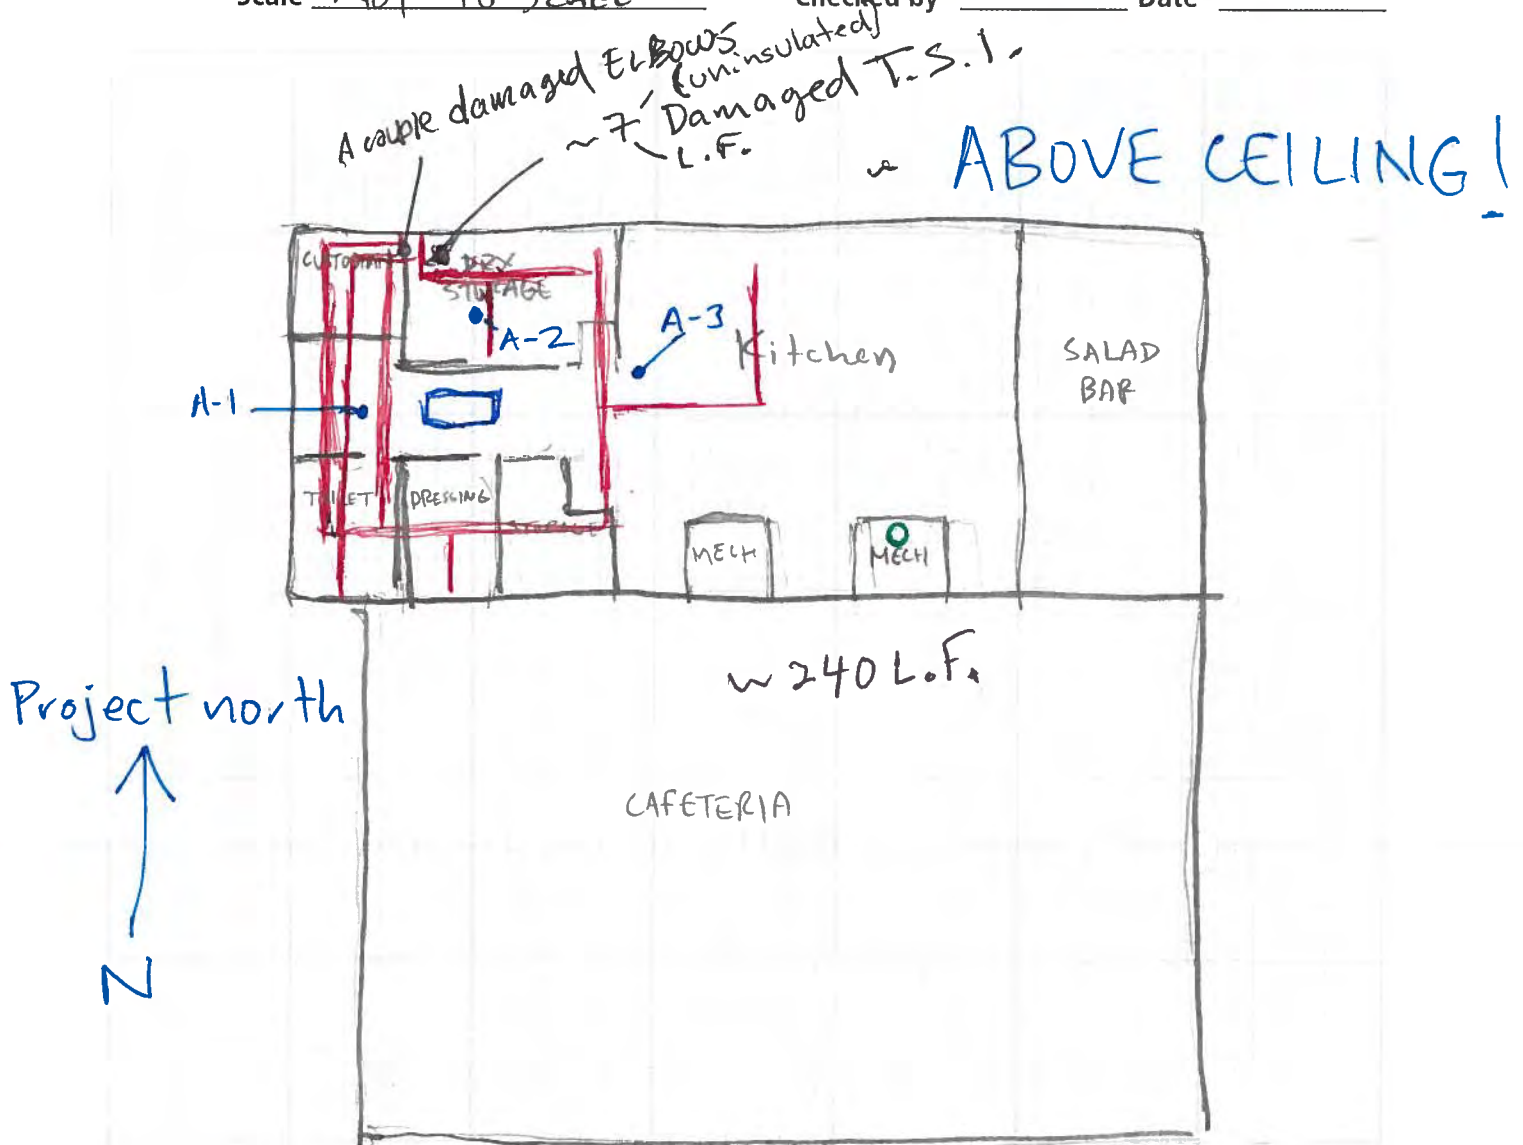 Scale NOT TO SCALE Checked by Date
A couple damaged ELBOWS
(uninsulated)
~7' Damaged T.S.I.
L.F.
~ ABOVE CEILING!
CUSTODIAN
DRY
STORAGE
A-2
A-3
Kitchen
SALAD
BAR
A-1
TOILET
DRESSING
STORAGE
MECH
MECH
~240 L.F.
Project north
CAFETERIA
N